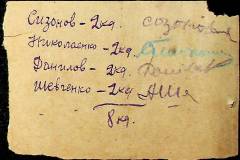 Сизонов - 2кд. созонова
Николаенко - 2кд.
Данилов - 2кд. Данилов
Шевченко - 2кд АШе
8 кд.